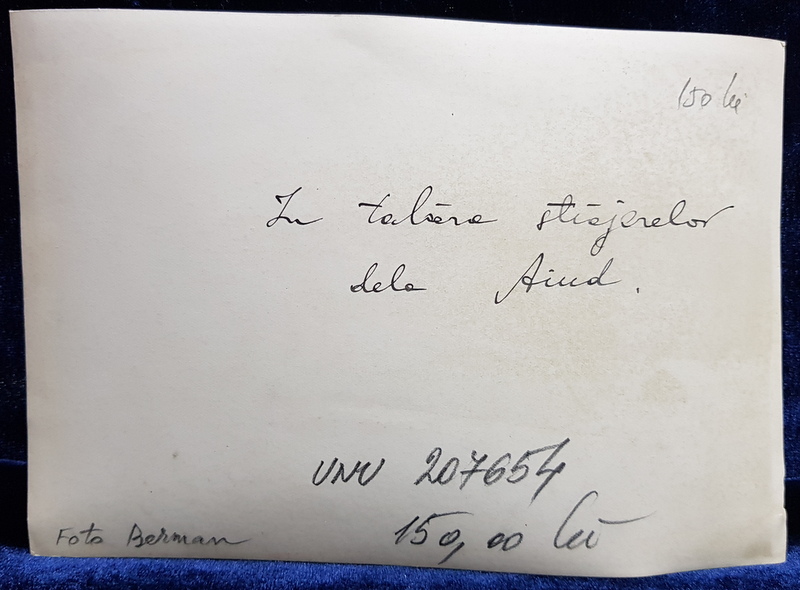 150 lei
In tabăra străjerelor
dela Aiud.
UNU 207654
Foto Berman
150,00 lei